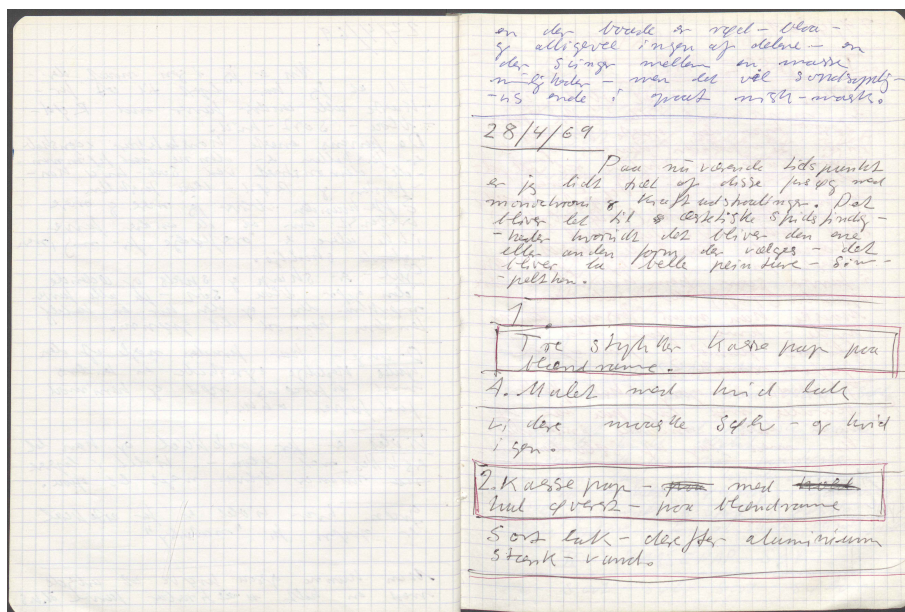 en der baade er rød - blaa -
og alligevel ingen af delene - en
der svinger mellem en masse
muligheder - men det vil sandsynlig-
-vis ende i graat misk-mask.
28/4/69
Paa nuværende tidspunkt
er jeg lidt træt af disse præg med
monochromi & Kraftudstraalinger. Det
bliver let til æstetiske spidsfindig-
-heder hvorvidt det bliver den ene
eller anden form der vælges - det
bliver la belle peinture - sim-
-pelthen.
1
Tre stykker Kasse pap paa
blændramme.
A. Malet med hvid lak
videre maaske sølv - og hvid
igen.
2. Kasse pap - med
hul øverst - paa blændramme
Sort lak - derefter aluminium
stænk - vand.